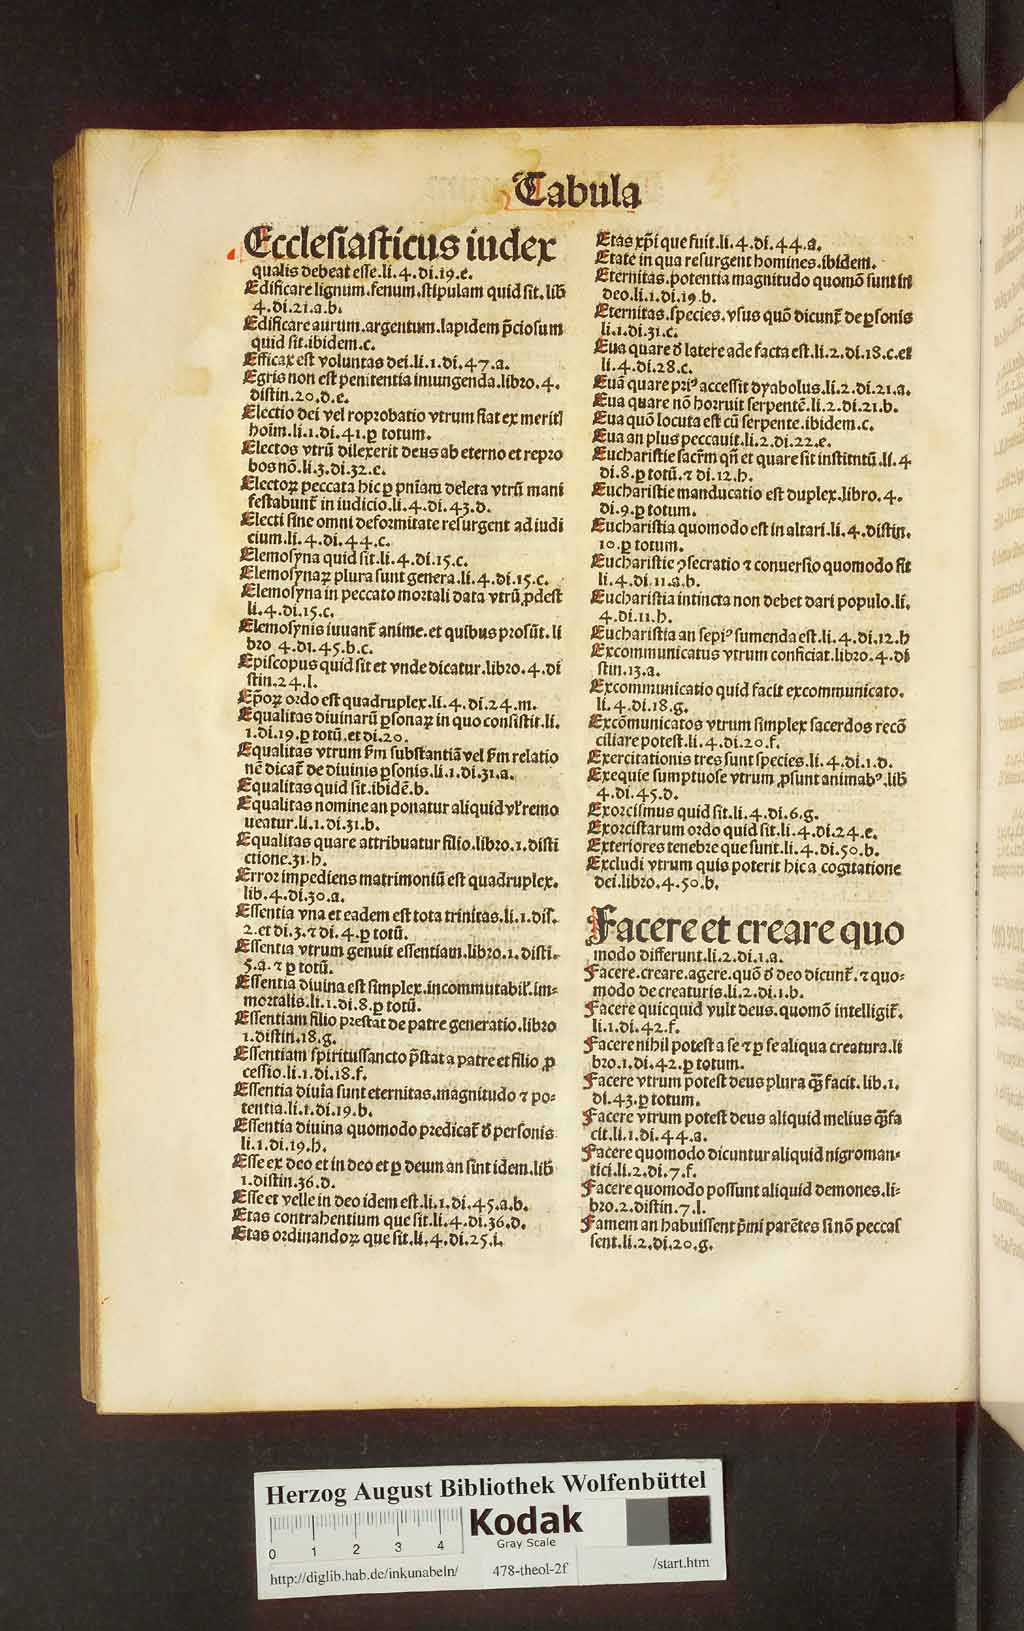 Tabula
Ecclesiasticus iudex
qualis debeat esse.li.4.di.19.e.
Edificare lignum.fenum.stipulam quid sit.lib̃
4.di.21.a.b.
Edificare aurum.argentum.lapidem p̃ciosum
quid sit.ibidem.c.
Efficax est voluntas dei.li.1.di.47.a.
Egris non est penitentia iniungenda.libro.4.
distin.20.d.e.
Electio dei vel reprobatio vtrum fiat ex meritl
hoĩm.li.1.di.41.ꝑ totum.
Electos vtrũ dilexerit deus ab eterno et repro
bos nõ.li.3.di.32.e.
Electoꝝ peccata hic ꝑ pñiam deleta vtrũ mani
festabunt̃ in iudicio.li.4.di.43.d.
Electi sine omni deformitate resurgent ad iudi
cium.li.4.di.44.c.
Elemosyna quid sit.li.4.di.15.c.
Elemosynaꝝ plura sunt genera.li.4.di.15.c.
Elemosyna in peccato mortali data vtrũ ꝓdest
li.4.di.15.c.
Elemosynis iuuant̃ anime.et quibus prosũt.li
bro 4.di.45.b.c.
Episcopus quid sit et vnde dicatur.libro.4.di
stin.24.l.
Ep̃oꝝ ordo est quadruplex.li.4.di.24.m.
Equalitas diuinarũ ꝑsonaꝝ in quo consistit.li.
1.di.19.ꝑ totũ.et di.20.
Equalitas vtrum ẜm substantiã vel ẜm relatio
nẽ dicat̃ de diuinis ꝑsonis.li.1.di.31.a.
Equalitas quid sit.ibidẽ.b.
Equalitas nomine an ponatur aliquid vl̃ remo
ueatur.li.1.di.31.b.
Equalitas quare attribuatur filio.libro.1.disti
ctione.31.h.
Error impediens matrimoniũ est quadruplex.
lib.4.di.30.a.
Essentia vna et eadem est tota trinitas.li.1.dis.
2.et di.3.⁊ di.4.ꝑ totũ.
Essentia vtrum genuit essentiam.libro.1.disti.
5.a.⁊ ꝑ totũ.
Essentia diuina est simplex.incommutabil̃.im-
mortalis.li.1.di.8.ꝑ totũ.
Essentiam filio prestat de patre generatio.libro
1.distin.18.g.
Essentiam spiritussancto p̃stat a patre et filio ꝓ
cessio.li.1.di.18.f.
Essentia diuĩa sunt eternitas.magnitudo ⁊ po-
tentia.li.1.di.19.b.
Essentia diuina quomodo predicat̃ ð personis
li.1.di.19.h.
Esse ex deo et in deo et ꝑ deum an sint idem.lib̃
1.distin.36.d.
Esse et velle in deo idem est.li.1.di.45.a.b.
Etas contrahentium que sit.li.4.di.36.d.
Etas ordinandoꝝ que sit.li.4.di.25.i.
Etas xp̃i que fuit.li.4.di.44.a.
Etate in qua resurgent homines.ibidem.
Eternitas.potentia magnitudo quomõ sunt in
deo.li.1.di.19.b.
Eternitas.species.vsus quõ dicunt̃ de ꝑsonis
li.1.di.31.c.
Eua quare ð latere ade facta est.li.2.di.18.c.et
li.4.di.28.c.
Euã quare priꝰ accessit dyabolus.li.2.di.21.a.
Eua quare nõ horruit serpentẽ.li.2.di.21.b.
Eua quõ locuta est cũ serpente.ibidem.c.
Eua an plus peccauit.li.2.di.22.e.
Eucharistie sacr̃m qñ et quare sit institntũ.li.4
di.8.ꝑ totũ.⁊ di.12.h.
Eucharistie manducatio est duplex.libro.4.
di.9.ꝑ totum.
Eucharistia quomodo est in altari.li.4.distin.
10.ꝑ totum.
Eucharistie ꝯsecratio ⁊ conuersio quomodo fit
li.4.di.11.a.b.
Eucharistia intincta non debet dari populo.li.
4.di.11.h.
Eucharistia an sepiꝰ sumenda est.li.4.di.12.h
Excommunicatus vtrum conficiat.libro.4.di
stin.13.a.
Excommunicatio quid facit excommunicato.
li.4.di.18.g.
Excõmunicatos vtrum simplex sacerdos recõ
ciliare potest.li.4.di.20.f.
Exercitationis tres sunt species.li.4.di.1.d.
Exequie sumptuose vtrum ꝓsunt animabꝰ.lib̃
4.di.45.d.
Exorcismus quid sit.li.4.di.6.g.
Exorcistarum ordo quid sit.li.4.di.24.e.
Exteriores tenebre que sunt.li.4.di.50.b.
Excludi vtrum quis poterit hic a cogitatione
dei.libro.4.50.b.
Facere et creare quo
modo differunt.li.2.di.1.a.
Facere.creare.agere.quõ ð deo dicunt̃.⁊ quo-
modo de creaturis.li.2.di.1.b.
Facere quicquid vult deus.quomõ intelligit̃.
li.1.di.42.f.
Facere nihil potest a se ⁊ ꝑ se aliqua creatura.li
bro.1.di.42.ꝑ totum.
Facere vtrum potest deus plura q̃ꝫ facit.lib.1.
di.43.ꝑ totum.
Facere vtrum potest deus aliquid melius q̃ꝫ fa
cit.li.1.di.44.a.
Facere quomodo dicuntur aliquid nigroman-
tici.li.2.di.7.f.
Facere quomodo possunt aliquid demones.li-
bro.2.distin.7.l.
Famem an habuissent p̃mi parẽtes si nõ peccas
sent.li.2.di.20.g.
Herzog August Bibliothek Wolfenbüttel
Kodak
Gray Scale
0 1 2 3 4
http://diglib.hab.de/inkunabeln/ 478-theol-2f /start.htm